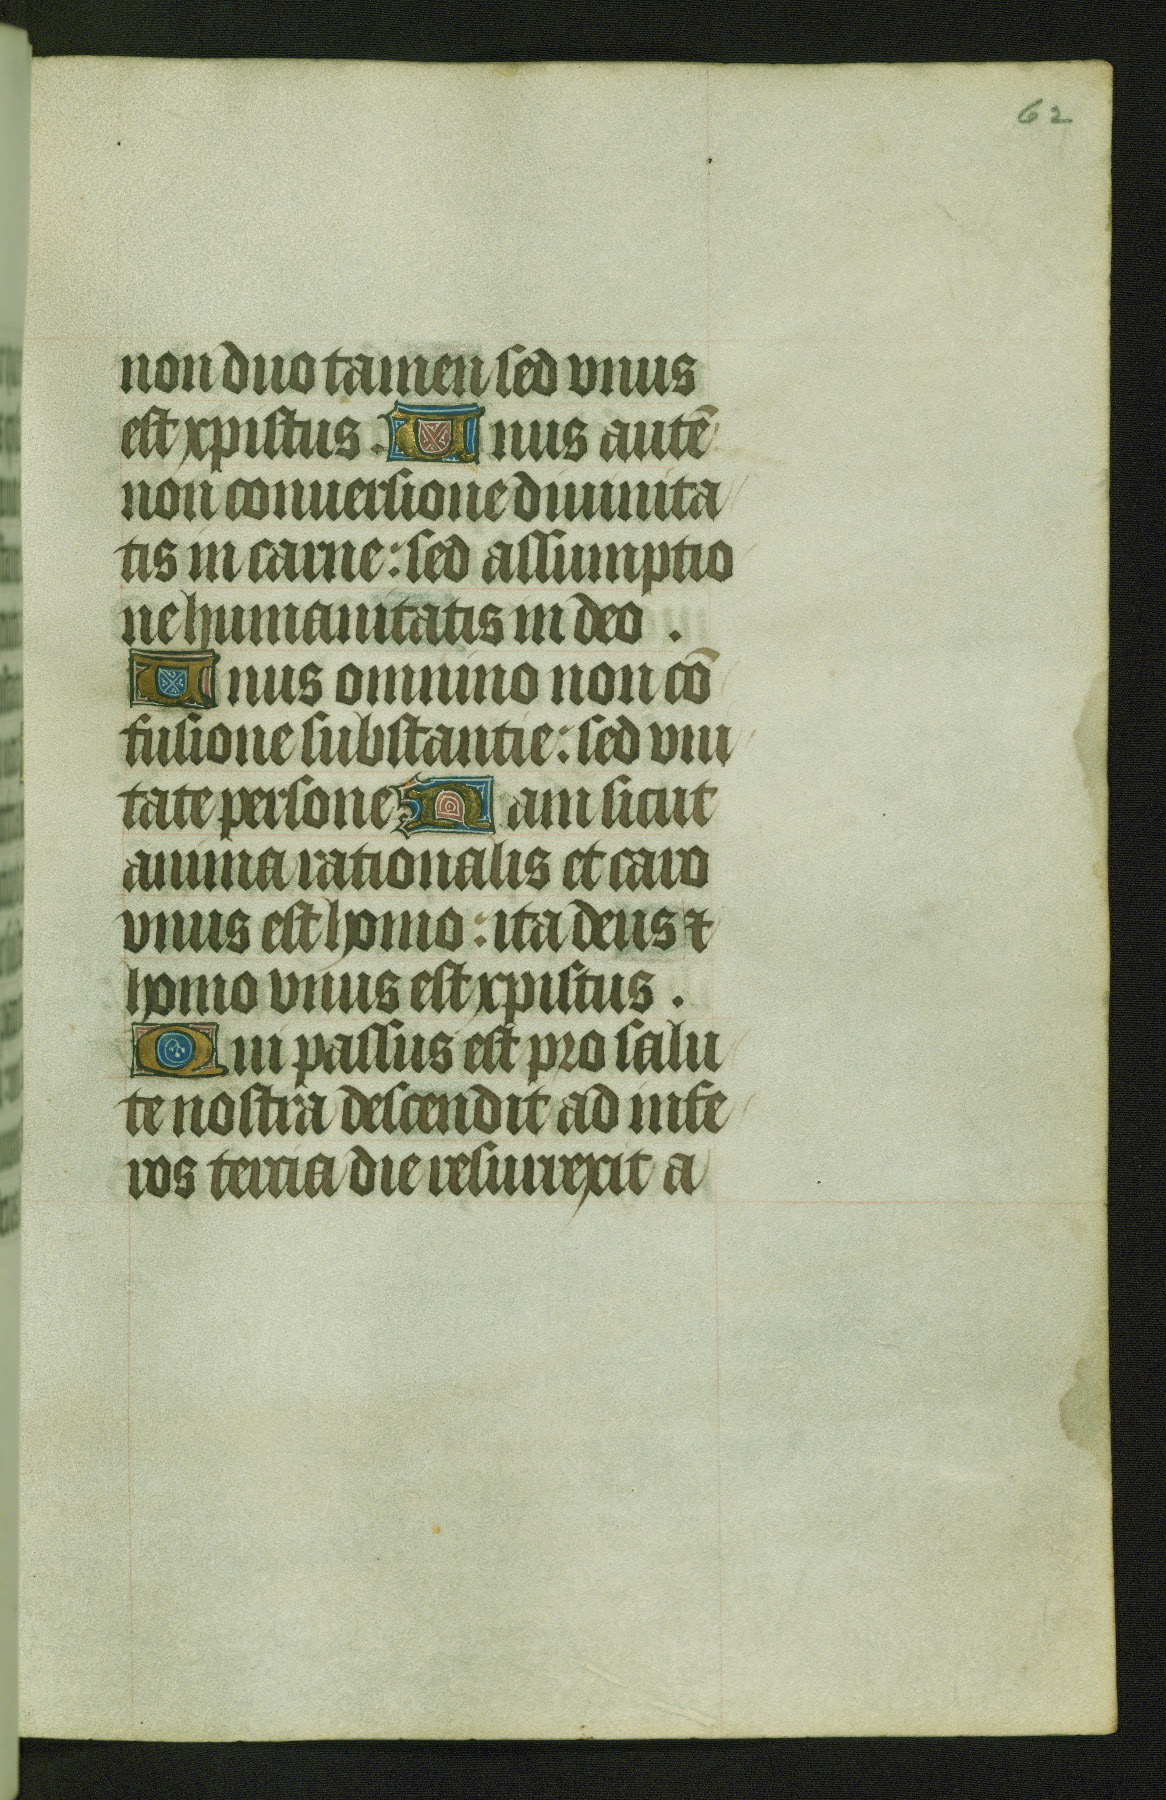 62
non duo tamen sed vnus
est xpistus. Unus autē
non conuersione diuinita
tis in carne: sed assumptio
ne humanitatis in deo.
Unus omnino non cō
fusione substantie: sed vni
tate persone Nam sicut
anima rationalis et caro
vnus est homo: ita deus ⁊
homo vnus est xpistus.
Qui passus est pro salu
te nostra descendit ad infe
ros tercia die resurrexit a